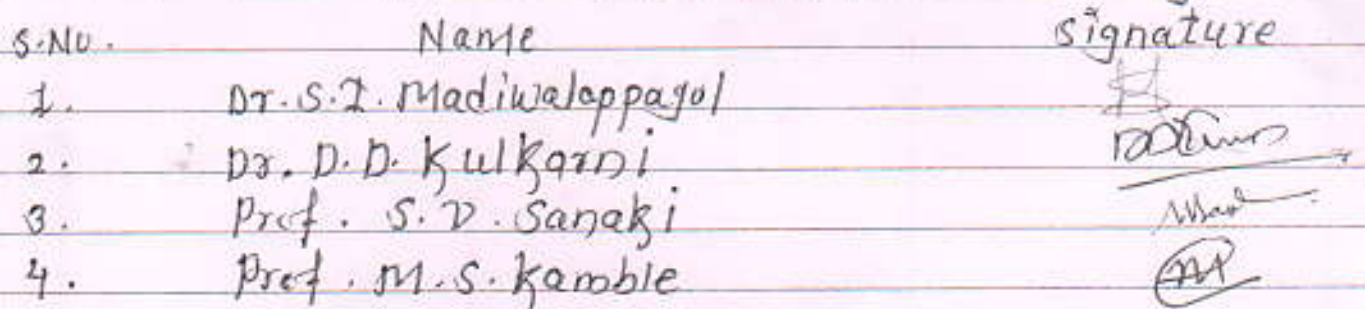 S.No. Name Signature
1. Dr. S.I. Madiwalappagol
2. Dr. D.D. Kulkarni
3. Prof. S.D. Sanaki
4. Prof. M.S. Kamble